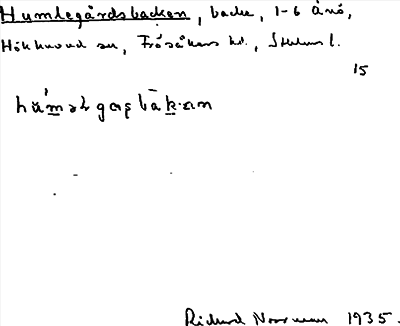 Humlegårdsbacken, backe, 1-6 änö,
Hökhuvud sn, Frösåkers hd., Sthlms l.
15
Richard Norrman 1935.